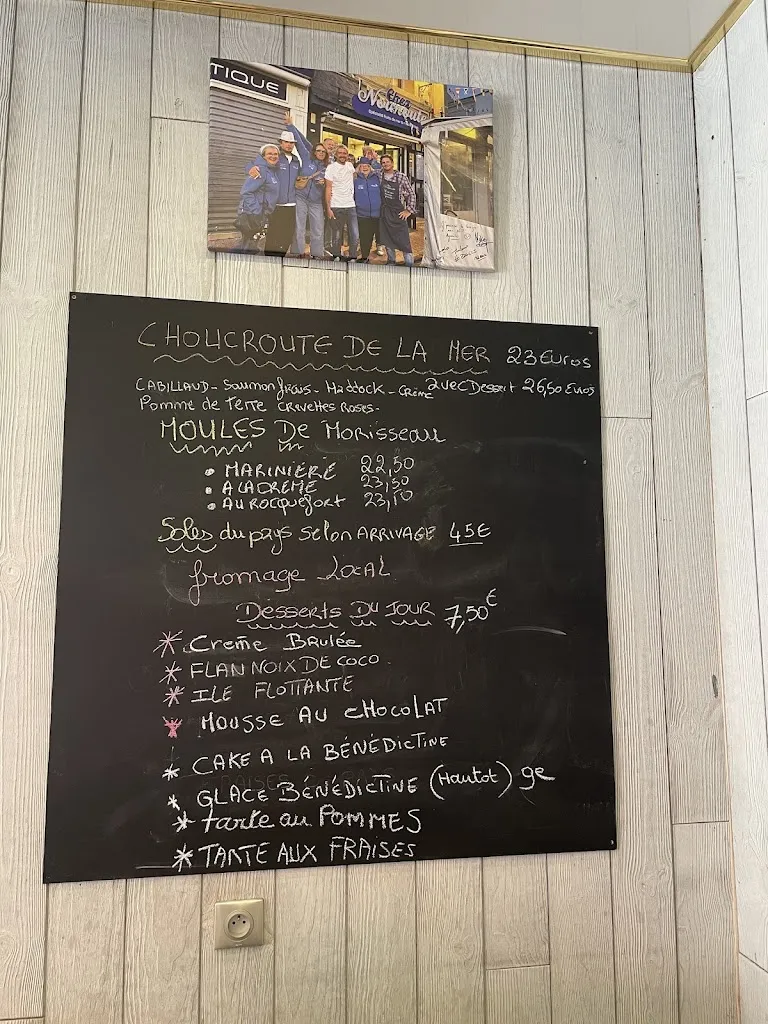 TIQUE
Chez
Nounoute
CHOUCROUTE DE LA MER 23 Euros
CABILLAUD - Saumon frais - Haddock - Crème avec Dessert 26,50 Euros
Pomme de Terre CREVETTES ROSES -
MOULES De Morisseau
• MARINIÈRE 22,50
• A LA CREME 23,50
• AU ROCQUEFORT 23,50
Soles du pays selon ARRIVAGE 45€
fromage Local
Desserts Du JOUR 7,50€
* Creme BRULéE
* FLAN NOIX DE COCO
* ILE FLOTTANTE
* MOUSSE AU CHOCOLAT
* CAKE A LA BÉNÉDICTINE
* GLACE BÉNÉDICTINE (Hautot) 9€
* tarte au POMMES
* TARTE AUX FRAISES